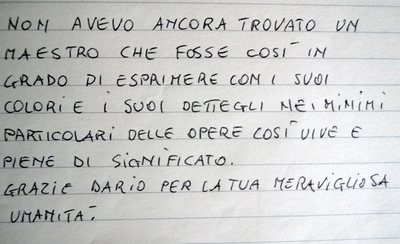 NON AVEVO ANCORA TROVATO UN
MAESTRO CHE FOSSE COSÌ IN
GRADO DI ESPRIMERE CON I SUOI
COLORI E I SUOI DETTEGLI NEI MINIMI
PARTICOLARI DELLE OPERE COSÌ VIVE E
PIENE DI SIGNIFICATO.
GRAZIE DARIO PER LA TUA MERAVIGLIOSA
UMANITÀ.